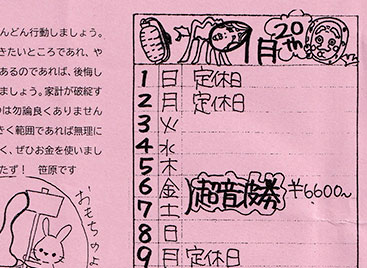 んどん行動しましょう。
きたいところであれ、や
あるのであれば、後悔し
ましょう。家計が破綻す
は勿論良くありません
きく範囲であれば無理に
く、ぜひお金を使いまし
たず！　笹原です
おもちのよ
9月 20th
1 日 定休日
2 月 定休日
3 火
4 水
5 木
6 金 超音波勝 ¥6600~
7 土
8 日
9 月 定休日